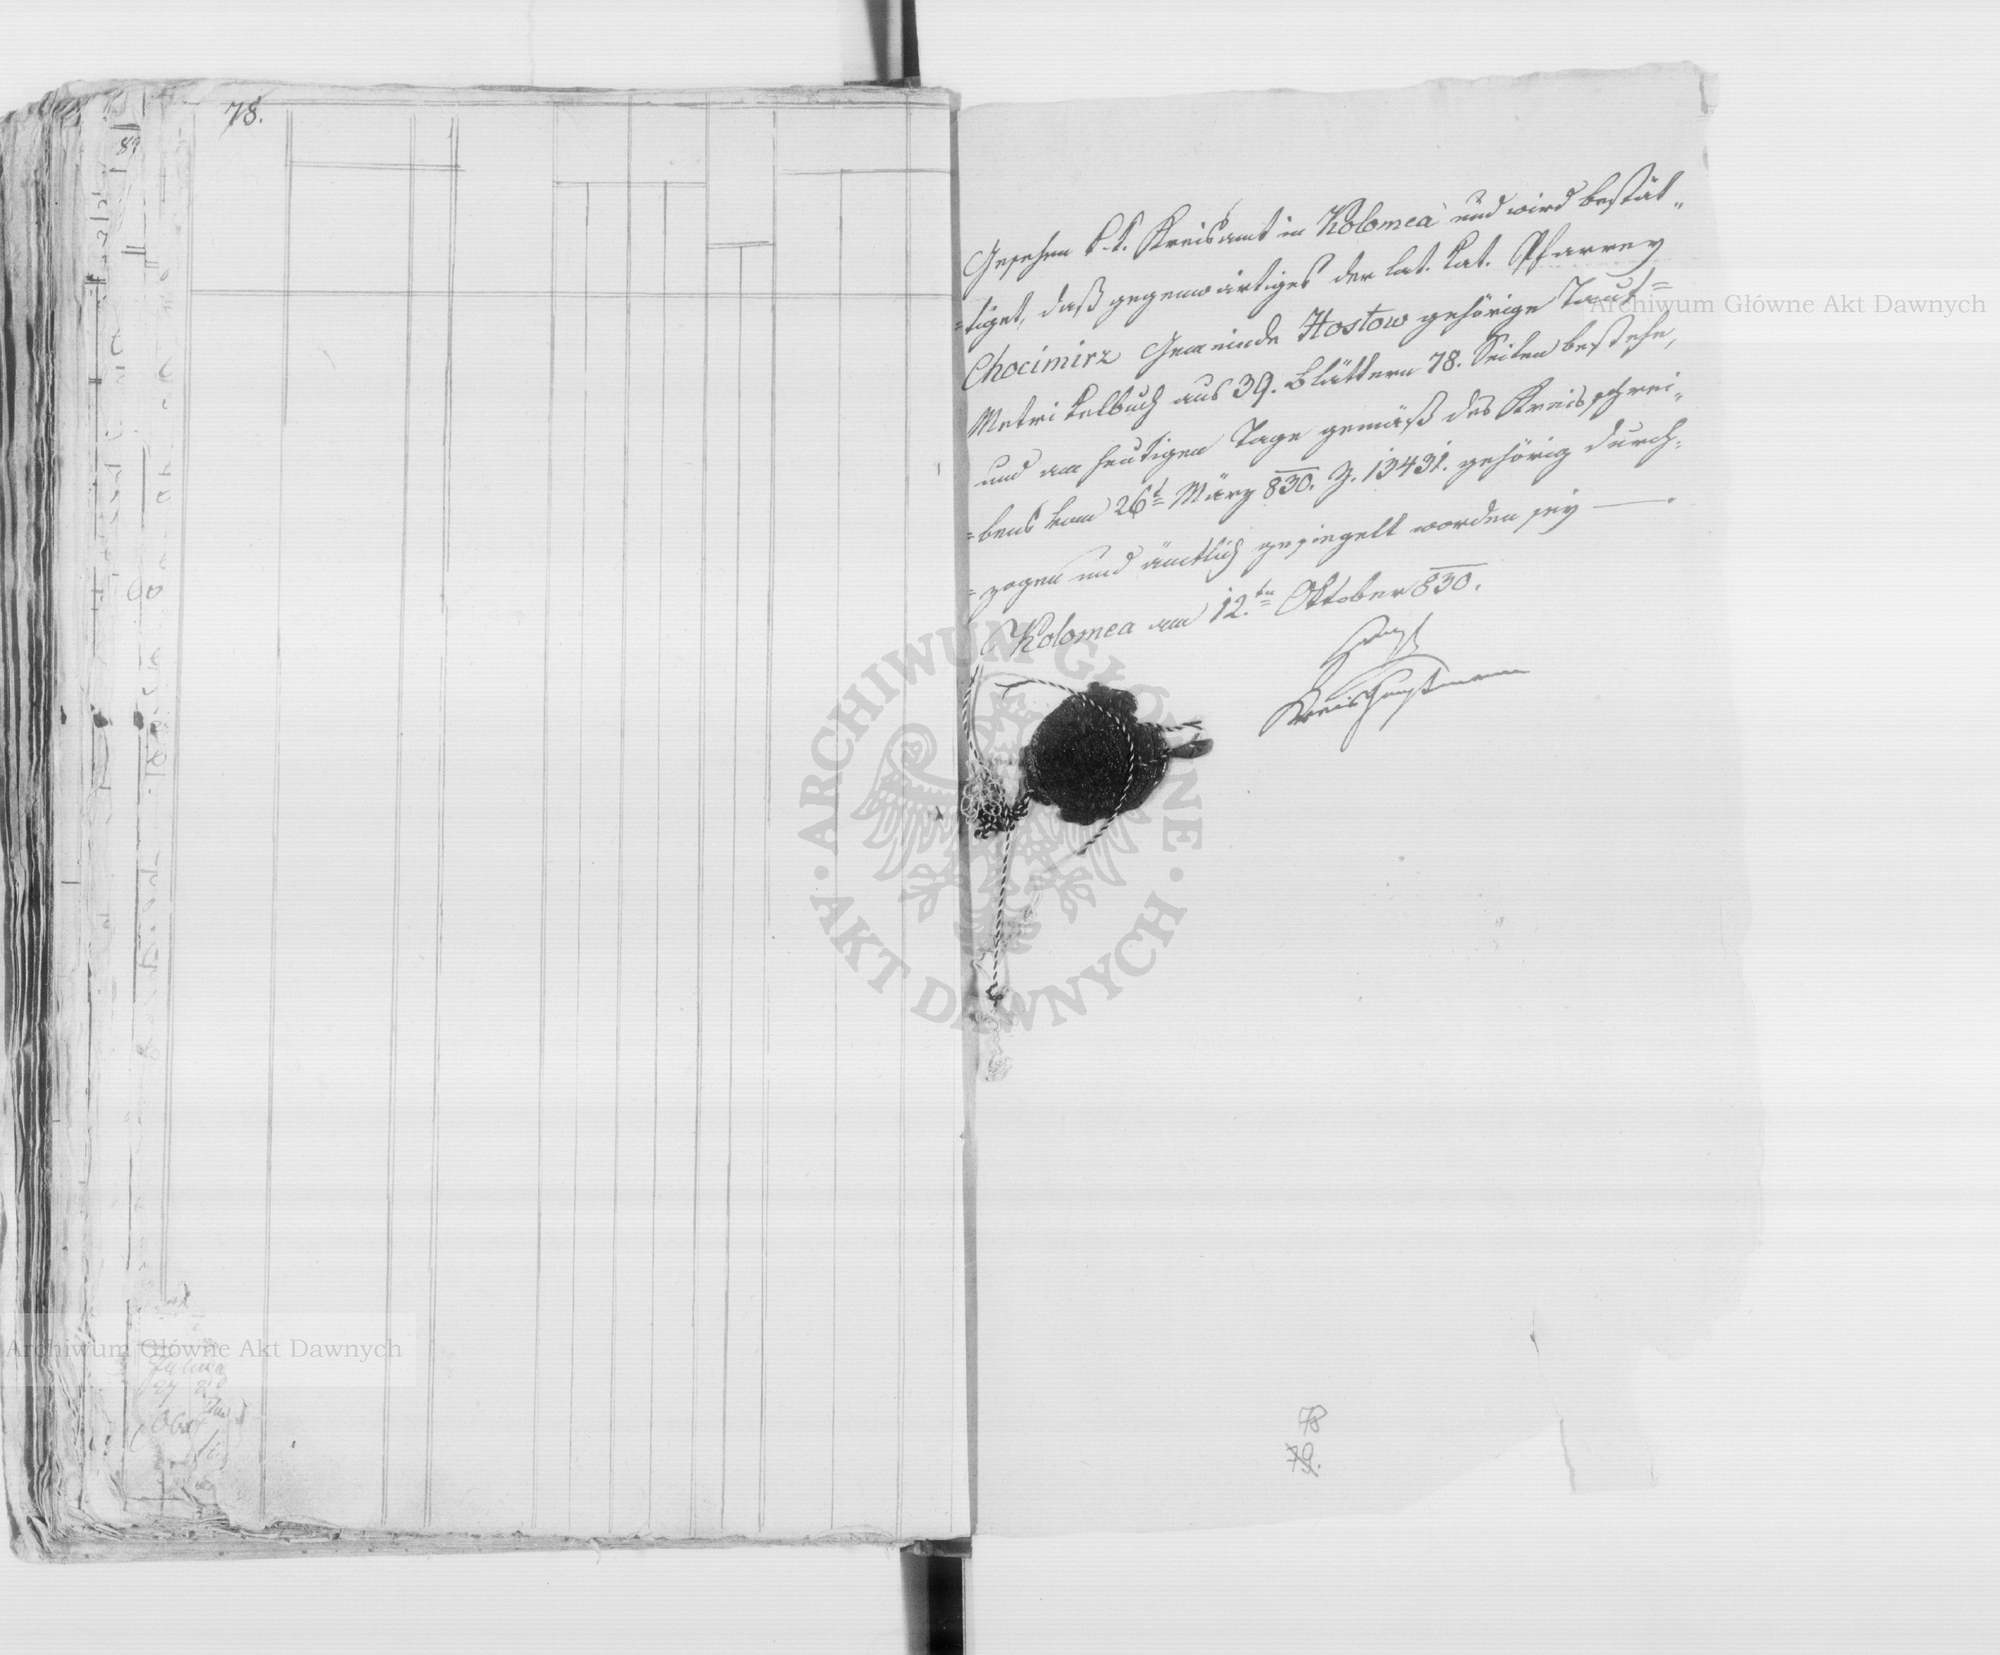 78.
89
Gesehen k. k. Kreisamt in Kolomea und wird bestät„
=tiget, daß gegenwärtiges der lat. kat. Pfarrey
Chocimirz Gemeinde Hostow gehörige Tauf=
Metrikelbuch aus 39. Blättern 78. Seiten bestehe,
und am heutigen Tage gemäß des Kreisschrei„
=bens vom 26t März 830. Z. 13431. gehörig durch=
=zogen und ämtlich gesiegelt worden sey —.
Kolomea am 12.ten Oktober 830.
Kreishauptmann
78
79.
Archiwum Główne Akt Dawnych
Archiwum Główne Akt Dawnych
ARCHIWUM GŁÓWNE
AKT DAWNYCH